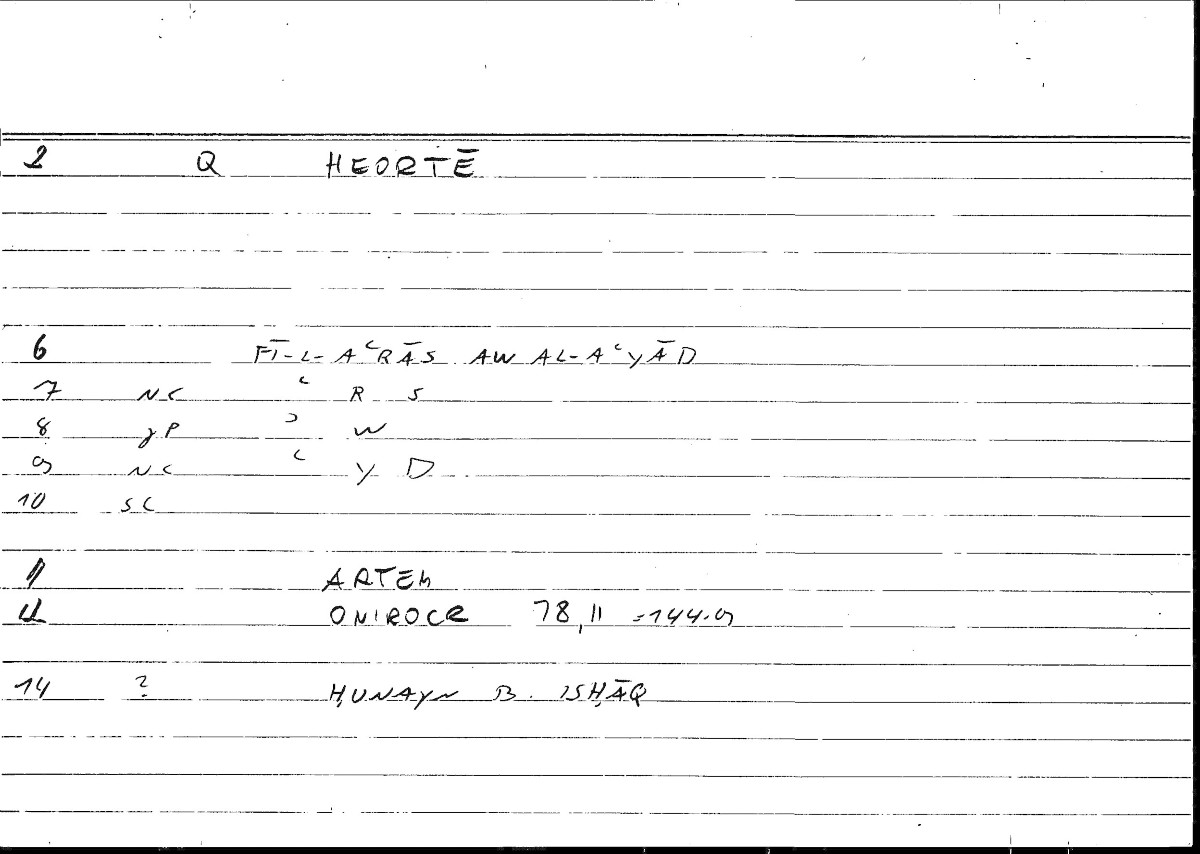 2 Q HEORTĒ
6 FĪ-L-AʿRĀS AW AL-AʿYĀD
7 NC ʿ R S
8 gP ʾ W
9 NC ʿ Y D
10 SC
11 ARTEM
12 ONIROCR 78,11 =144.9
14 ? ḤUNAYN B. ISḤĀQ